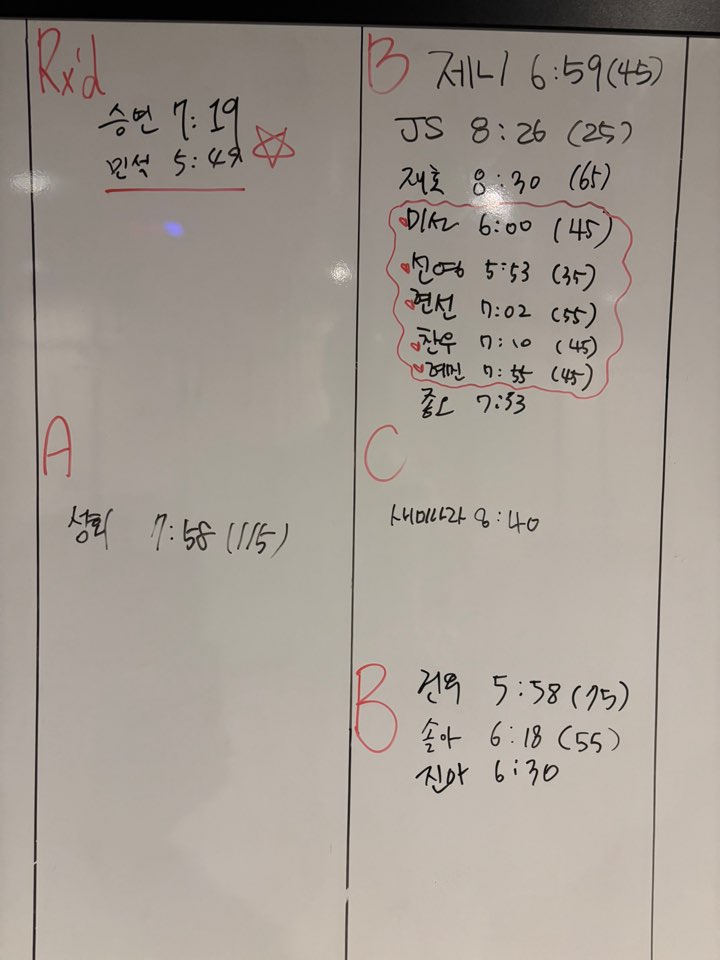 Rx'd
승연 7:19
민석 5:49
A
성희 7:58 (115)
B
제니 6:59 (45)
JS 8:26 (25)
재호 8:30 (65)
미선 6:00 (45)
선영 5:53 (35)
현선 7:02 (55)
찬우 7:10 (45)
7:55 (45)
7:53
C
새미사라 8:40
B
건우 5:58 (75)
솔아 6:18 (55)
진아 6:30